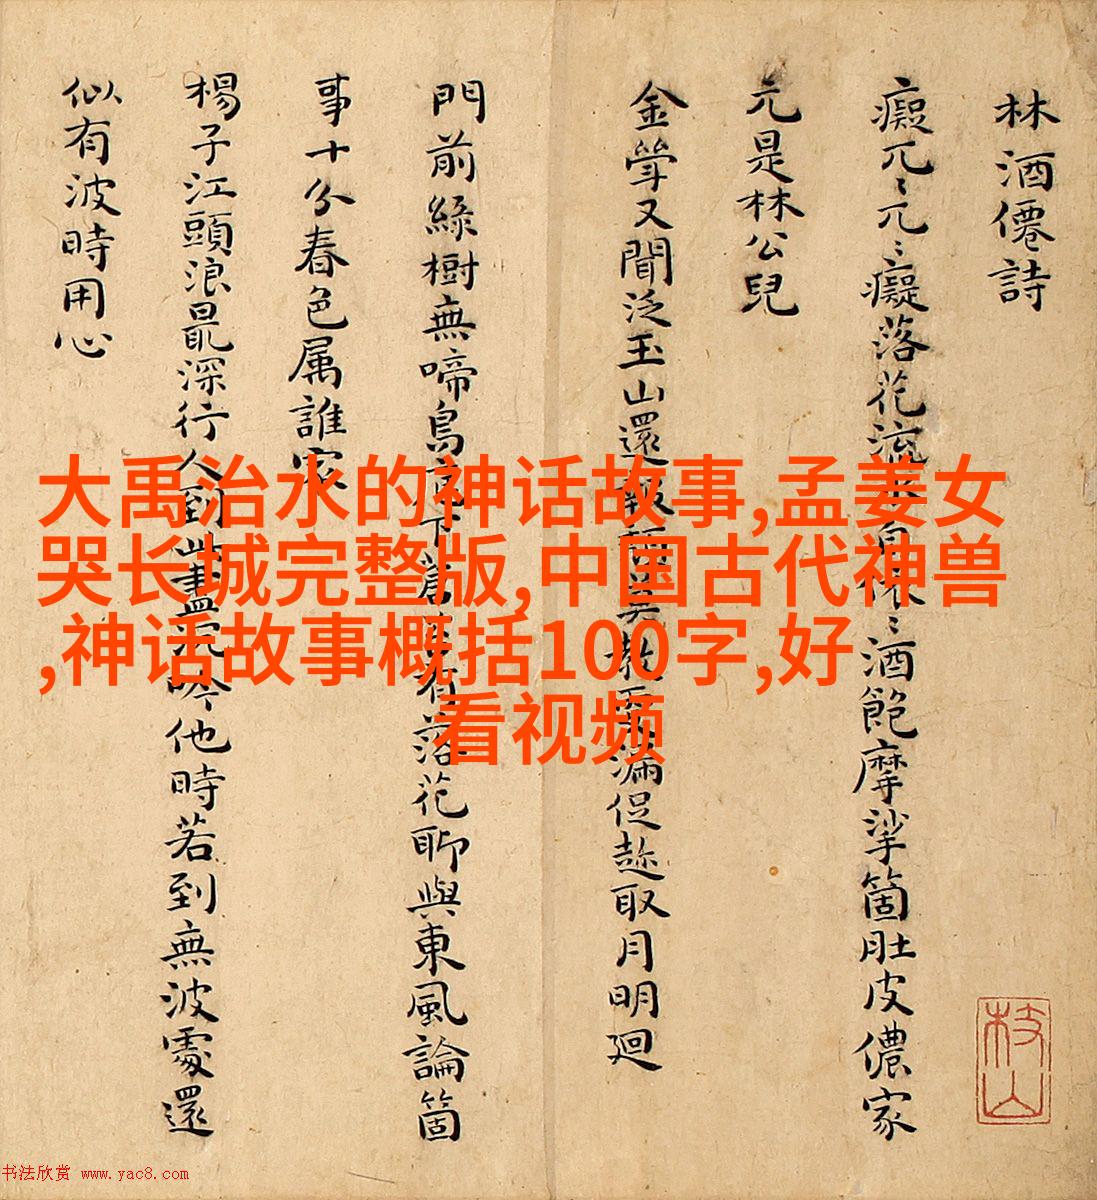 林酒僊詩
癡兀〻兀〻癡落花流水自休〻酒飽摩挲箇肚皮儂家
元是林公兒
金斝又聞泛玉山還報頹莫教更漏促趁取月明廻
門前綠樹無啼鳥庭下蒼苔有落花聊與東風論箇
事十分春色属誰家
楊子江頭浪最深行人到此盡沉吟他時若到無波處還
似有波時用心
枝山
大禹治水的神话故事,孟姜女
哭长城完整版,中国古代神兽
,神话故事概括100字,好
看视频
书法欣赏 www.yac8.com